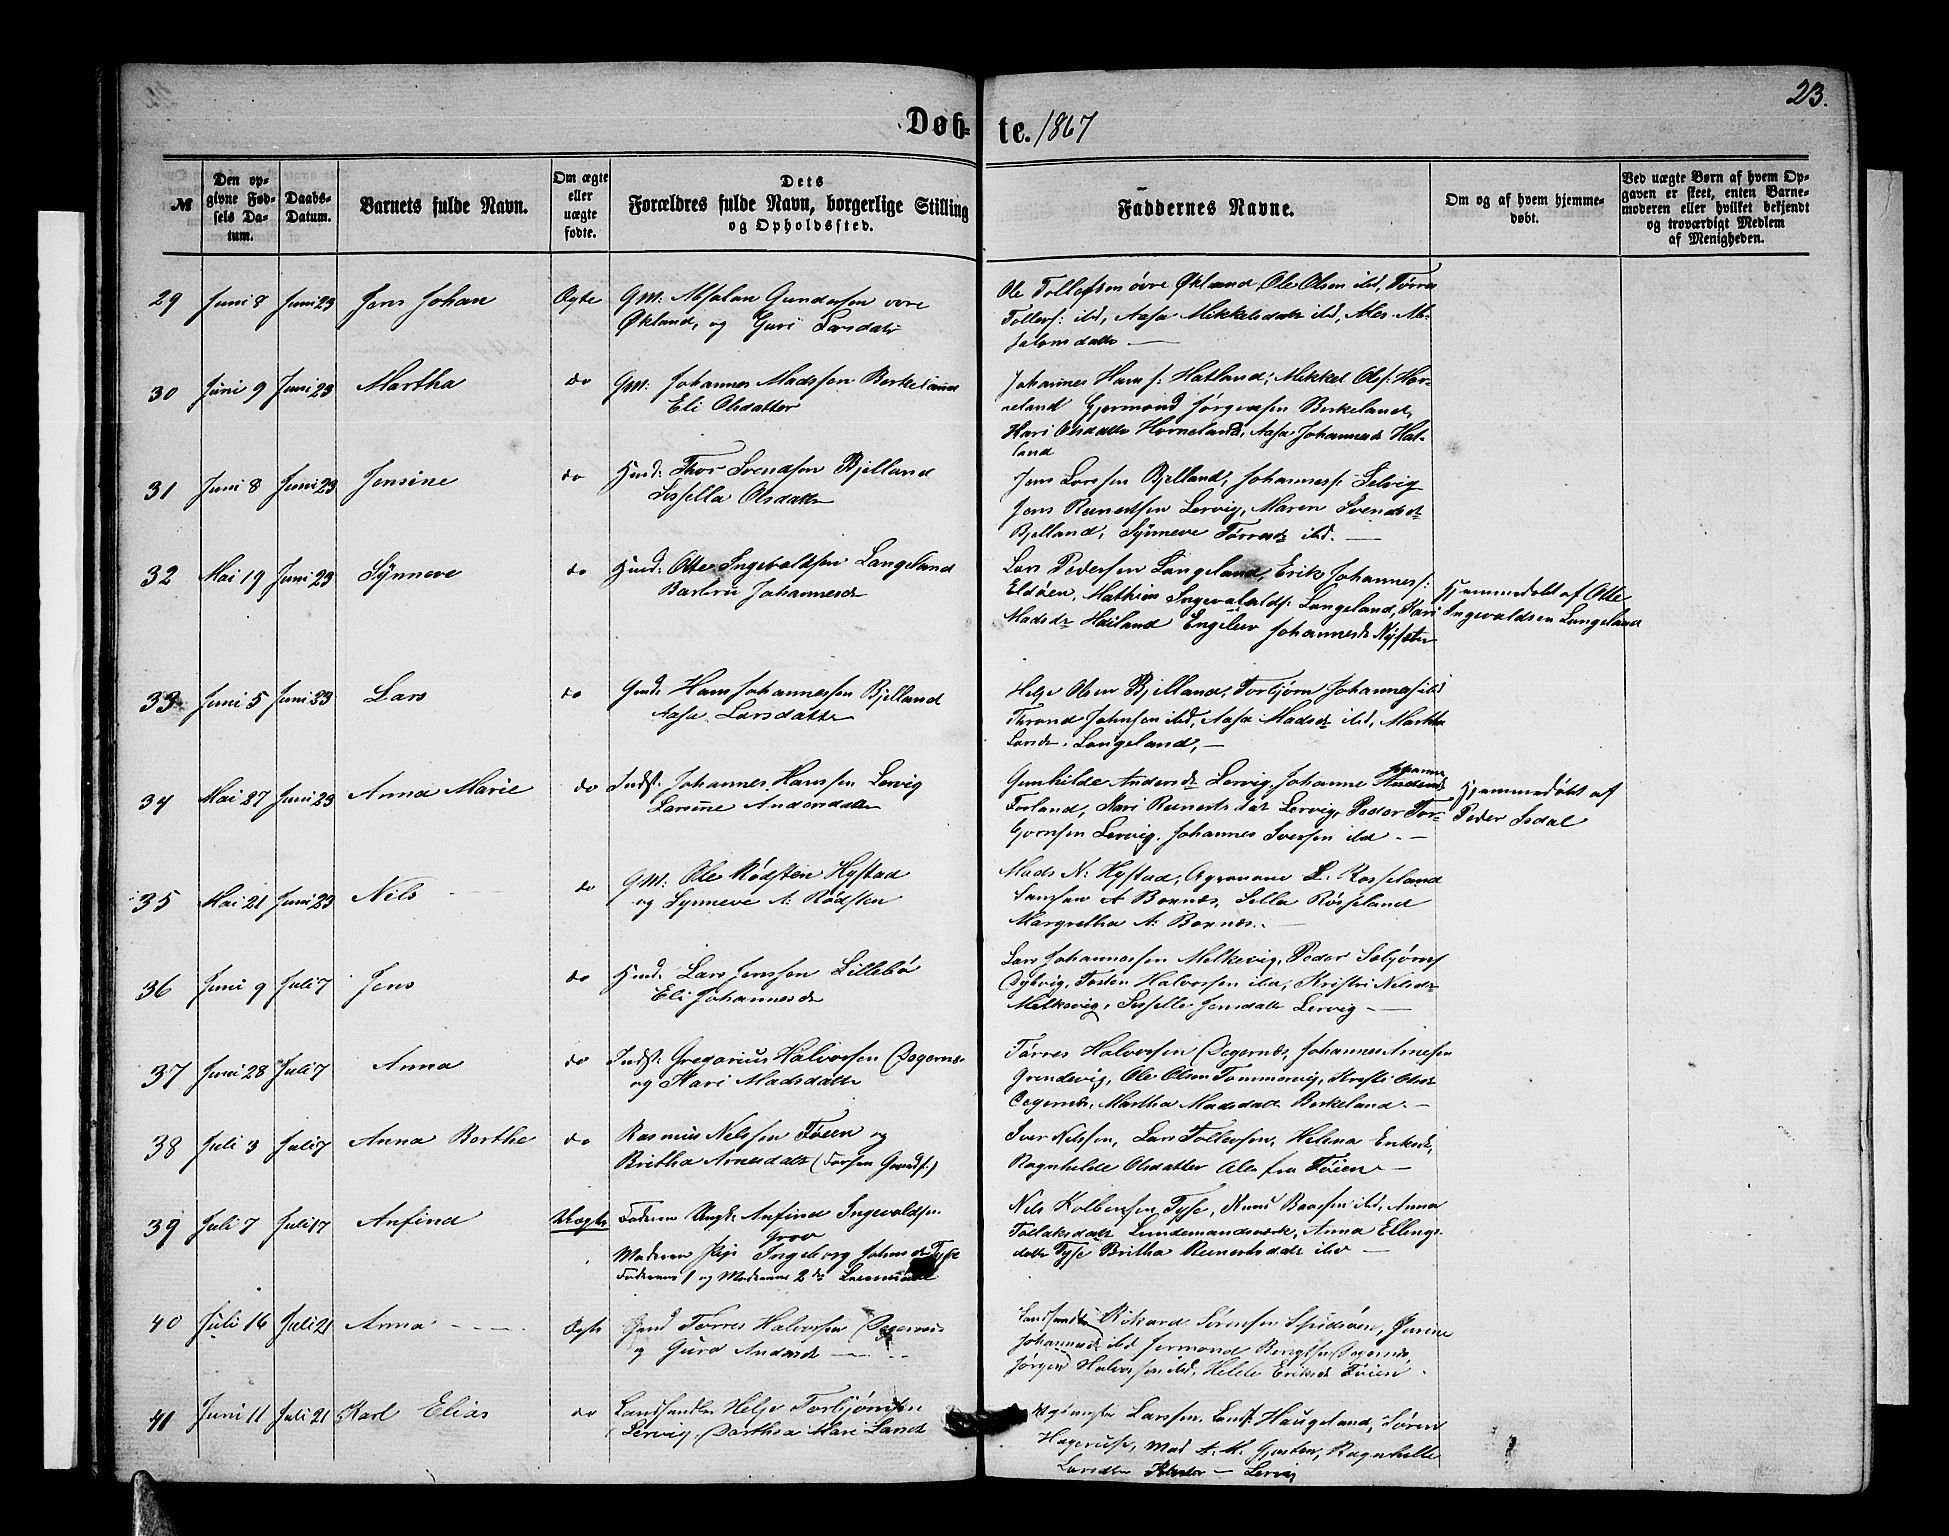 23.
Døb-te. 1867
№
Den opgivne Fødsels Datum.
Daabs-Datum.
Barnets fulde Navn.
Om ægte eller uægte fødte.
Dets Forældres fulde Navn, borgerlige Stilling og Opholdssted.
Faddernes Navne.
Om og af hvem hjemmedøbt.
Ved uægte Børn af hvem Opgaven er skeet, enten Barnemoderen eller hvilket bekjendt og troværdigt Medlem af Menigheden.
29 Juni 8 Juni 23 Jens Johan Ægte Gm: Absalon Gundersen øvre
Økland, og Guri Larsdatr
Ole Tollefsen øvre Økland, Ole Olsen ibd, Tørres
Tollefs: ibd, Aasa Mikkelsdatr ibd,
30 Juni 9 Juni 23 Martha do Gm: Johannes Madssen Berkeland
Eli Olsdatter
Johannes Hans: Hatland, Mikkel Ols: Hor-
neland Gjermond Jørgensen Berkeland,
Kari Olsdatter Horneland, Aasa Johannesd Hat-
land
31 Juni 8 Juni 23 Jensine do Huusd: Thor Svendsen Bjelland
Sissella Olsdatter
Jens Larssen Bjelland, Johannes: Selvig
Jens Reinertsen Lervig, Maren Svendsdr
Bjelland, Synneve Tørresdr ibd. —
32 Mai 19 Juni 23 Synneve do Huusd: Otte Ingevaldsen Langeland
Barbru Johannesdr
Lars Pedersen Langeland, Erik Johannes:
Eldøen, Mathias Ingevalds: Langeland, Kari
Madsdr Hailand Engelev Johannesdr Nysæter
Hjemmedøbt af Otte
Ingevaldsen Langeland
33 Juni 5 Juni 23 Lars do Gmd: Hans Johannessen Bjelland
Aasa Larsdatter
Helge Olsen Bjelland, Torbjørn Johannes: ibd
Thrond Johnsen ibd, Aasa Madsdr ibd, Martha
Larsdr. Langeland, —
34 Mai 27 Juni 23 Anna Marie do Indst: Johannes Hanssen Lervig
Larsine Andersdatter
Gunhilde Andersdr Lervig, Johanne
Forland, Kari Reinertsdat Lervig, Peder Tor-
Lervig, Johannes Iversen ibd —
Hjemmedøbt af
Peder Isdal
35 Mai 21 Juni 23 Nils do Gm: Ole Rødsten Hystad
og Synneve A: Rødsten
Mads N: Hystad, L. Rosseland
Samson A Bornes, Silla Røsseland
Margretha A: Bornes. —
36 Juni 9 Juli 7 Jens do Huusd: Lars Jenssen Lillebø
Eli Johannesdr
Lars Johannessen Melkevig, Peder
Dybvig, Tosten Halvorsen ibd, Kristri Nilsdr
Melkevig, Sisselle Jensdatr Lervig —
37 Juni 28 Juli 7 Anna do Indst: Gregorius Halvorsen Degernes
og Kari Madsdatr
Tørres Halvorsen Degernes, Johannes Arnesen
Grendevig, Ole Olsen Tommervig, Kristi Olsdr
Degernes, Martha Madsdatr Berkeland. —
38 Juli 3 Juli 7 Anna Berthe do Rasmus Nelssen Føien og
Britha Arnesdatr
Iver Nilssen, Lars Tollevsen, Helena Eriksdr,
Ragnhilde Olsdatter Alle fra Føien —
39 Juli 7 Juli 17 Anfind Uægte Faderen Ungk: Anfind Ingevaldsen
Moderen Pige Ingeborg Johnsdr Tyse
Faderens 1 og Moderens 2det Leiermaal
Nils Kolbensen Tyse, Knud Baarsen ibd, Anna
Tollaksdatr Lundemandsværk, Anna Ellings-
datr Tyse Britha Reinertsdatr ibd —
40 Juli 16 Juli 21 Anna Ægte Gmd Tørres Halvorsen Degernes
og Guro Andersdr —
Landhandler Rikard Sørensen Spidsøen,
Johannesdr ibd Degernes
Jørgen Halvorsen ibd, Helene Eriksdr Føien
41 Juni 11 Juli 21 Karl Elias do Landhandler Helje Torbjørnsen
Lervig, Dorthea Mari Landr
Larssen, Haugeland, Søren
Hagerup, Mad A. M. Gjerten, Ragnhille
Larsdtr — Lervig